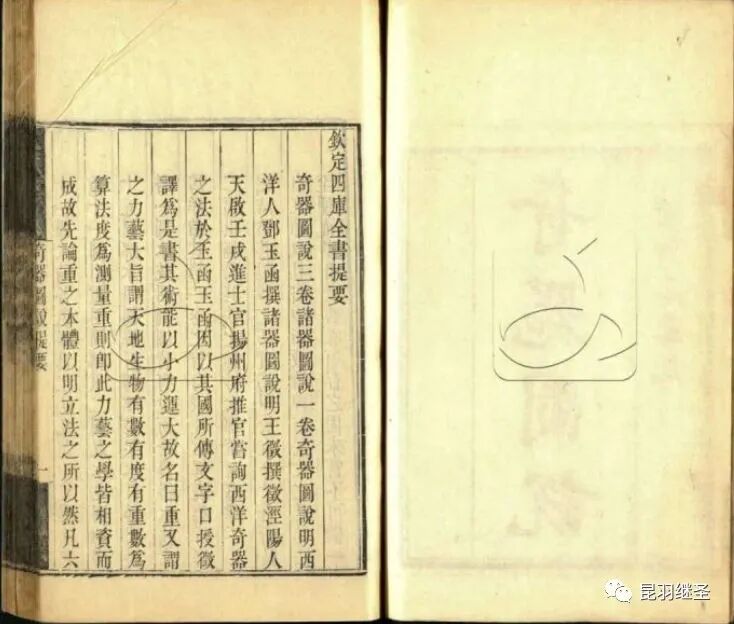 欽定四庫全書提要
奇器圖說三卷諸器圖說一卷奇器圖說明西
洋人鄧玉函撰諸器圖說明王徵撰徵涇陽人
天啟壬戌進士官揚州府推官嘗詢西洋奇器
之法於玉函玉函因以其國所傳文字口授徵
譯為是書其術能以小力運大故名曰重又謂
之力藝大旨謂天地生物有數有度有重數為
算法度為測量重則即此力藝之學皆相資而
成故先論重之本體以明立法之所以然凡六
奇器圖說提要
一
昆羽继圣